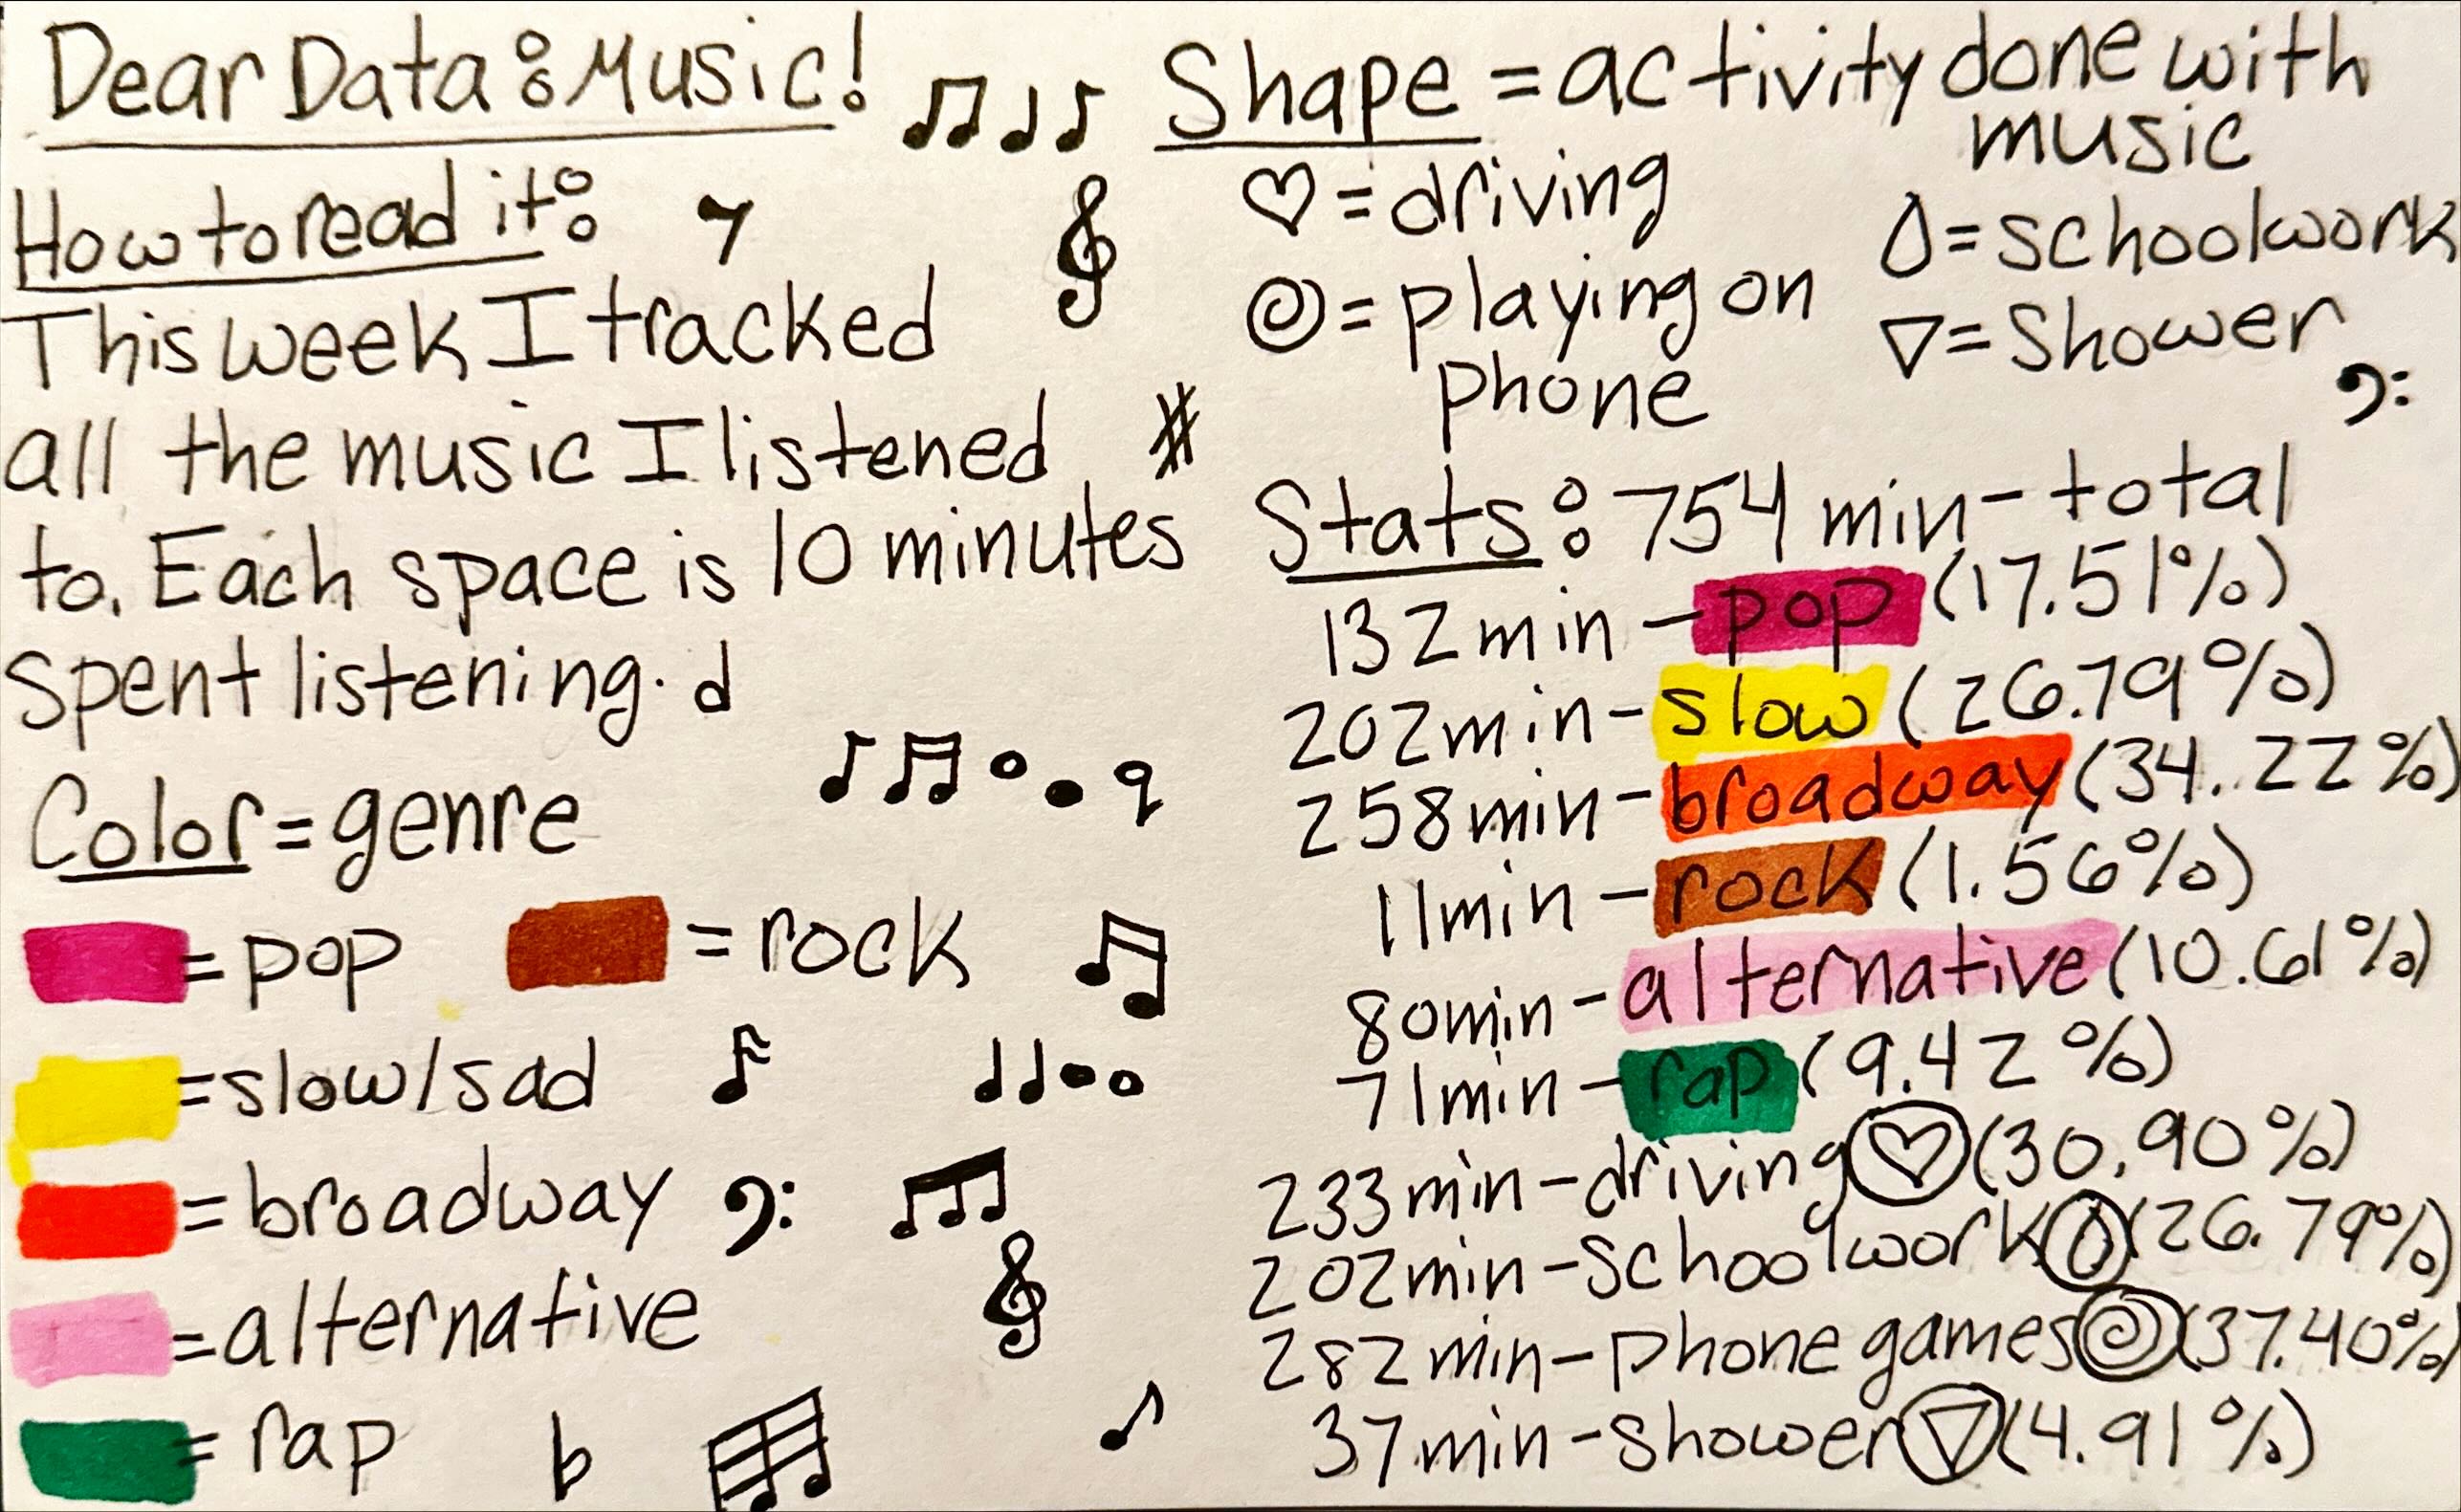 Dear Data: Music!
How to read it:
This week I tracked
all the music I listened
to. Each space is 10 minutes
spent listening.
Color = genre
= pop
= rock
= slow/sad
= broadway
= alternative
= rap
Shape = activity done with
music
= driving
= playing on
phone
= schoolwork
= Shower
Stats: 754 min - total
132 min - pop (17.51%)
202 min - slow (26.79%)
258 min - broadway (34.22%)
11 min - rock (1.56%)
80 min - alternative (10.61%)
71 min - rap (9.42%)
233 min - driving (30.90%)
202 min - schoolwork (26.79%)
282 min - phone games (37.40%)
37 min - shower (4.91%)